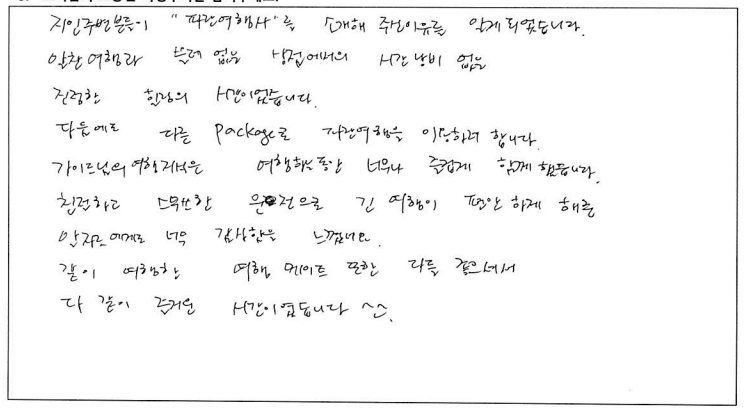 지인주변분들이 "파란여행사"를 소개해 주신이유를 알게되었습니다.
알찬여행과 쓸데 없는 상점에서의 시간낭비 없는
진정한 힐링의 시간이었습니다.
다음에도 다른 package로 파란여행을 이용하려 합니다.
가이드님의 여행지식은 여행하는동안 너무나 즐겁게 함께했습니다.
친절하고 스무쓰한 운전으로 긴 여행이 편안하게 해준
에게도 너무 감사함을 느꼈네요.
같이 여행한 여행 메이트 또한 다들 좋으셔서
다 같이 즐거운 시간이였습니다 ^^.